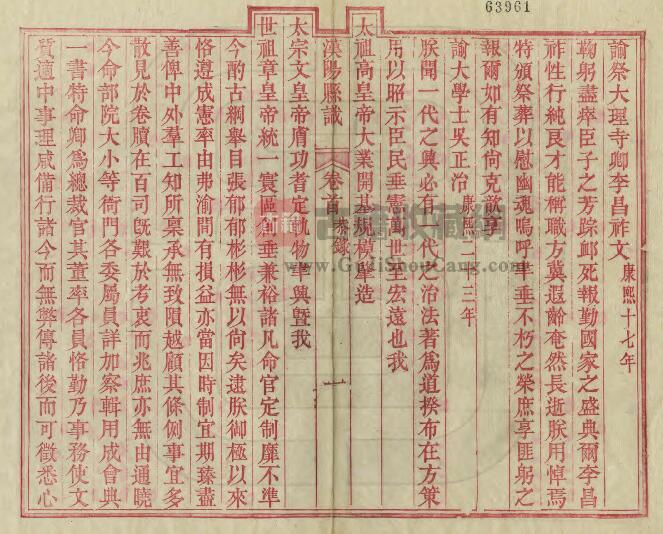 63961
諭祭大理寺卿李昌祚文 康熙十七年
鞠躬盡瘁臣子之芳踪䘏死報勤國家之盛典爾李昌
祚性行純良才能稱職方冀遐齡奄然長逝朕用悼焉
特頒祭葬以慰幽魂嗚呼聿垂不朽之榮庶享匪躬之
報爾如有知尚克歆享
諭大學士吳正治 康熙二十三年
朕聞一代之興必有一代之治法著為道揆布在方策
用以昭示臣民垂憲萬世至宏遠也我
太祖高皇帝大業開基規模肇造
漢陽縣識 卷首 恭錄 一
太宗文皇帝膚功耆定軌物聿興曁我
世祖章皇帝統一寰區謨垂兼裕諸凡命官定制靡不準
今酌古綱舉目張郁郁彬彬無以尚矣逮朕御極以來
恪遵成憲率由弗渝間有損益亦當因時制宜期臻盡
善俾中外羣工知所稟承無致隕越顧其條例事宜多
散見於卷牘在百司旣艱於考衷而兆庶亦無由通曉
今命部院大小等衙門各委屬員詳加察輯用成會典
一書特命卿為總裁官其董率各員恪勤乃事務使文
質適中事理咸備行諸今而無弊傳諸後而可徵悉心
古籍收藏網
www.GujiShouCang.com